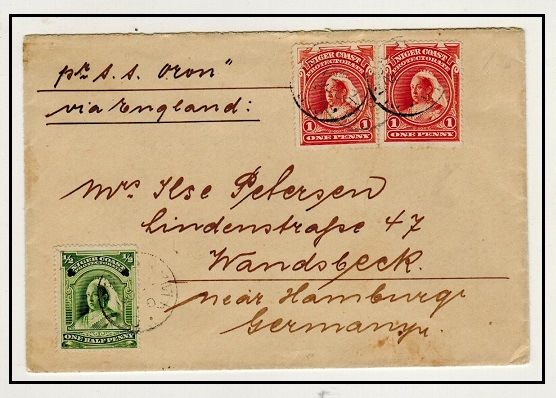 pr. S. S. Oron"
via England:
NIGER COAST
PROTECTORATE
1 1
ONE PENNY
NIGER COAST
PROTECTORATE
1 1
ONE PENNY
Mrs Ilse Petersen
Lindenstraße 47
Wandsbeck
near Hamburg
Germany
½ ½
NIGER COAST
PROTECTORATE
ONE HALF PENNY